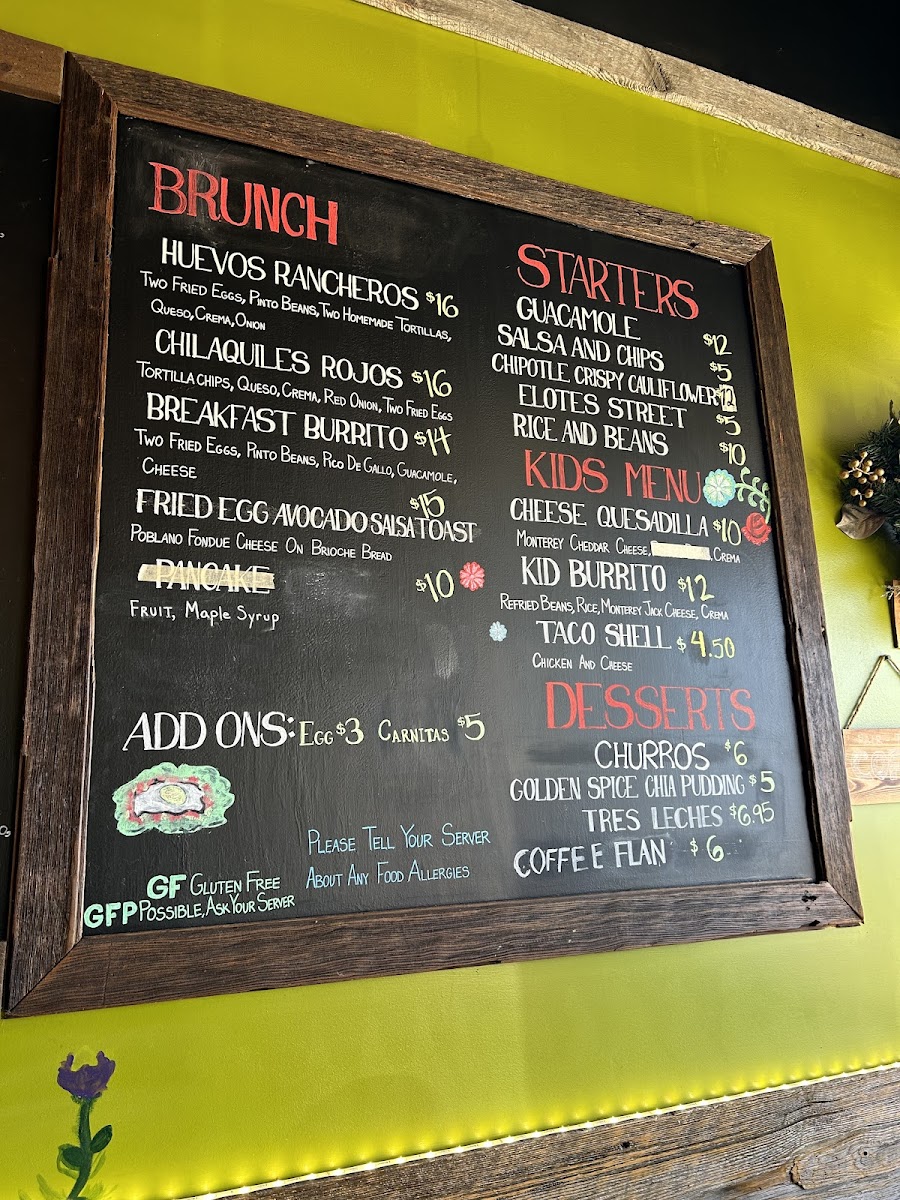 BRUNCH
HUEVOS RANCHEROS $16
TWO FRIED EGGS, PINTO BEANS, TWO HOMEMADE TORTILLAS,
QUESO, CREMA, ONION
CHILAQUILES ROJOS $16
TORTILLA CHIPS, QUESO, CREMA, RED ONION, TWO FRIED EGGS
BREAKFAST BURRITO $14
TWO FRIED EGGS, PINTO BEANS, PICO DE GALLO, GUACAMOLE,
CHEESE
$15
FRIED EGG AVOCADO SALSA TOAST
POBLANO FONDUE CHEESE ON BRIOCHE BREAD
PANCAKE $10
FRUIT, Maple Syrup
ADD ONS: EGG $3 CARNITAS $5
PLEASE TELL YOUR SERVER
ABOUT ANY FOOD ALLERGIES
GF GLUTEN FREE
GFP POSSIBLE, ASK YOUR SERVER
STARTERS
GUACAMOLE $12
SALSA AND CHIPS $5
CHIPOTLE CRISPY CAULIFLOWER $12
ELOTES STREET $5
RICE AND BEANS $10
KIDS MENU
CHEESE QUESADILLA $10
MONTEREY CHEDDAR CHEESE, , CREMA
KID BURRITO $12
REFRIED BEANS, RICE, MONTEREY JACK CHEESE, CREMA
TACO SHELL $4.50
CHICKEN AND CHEESE
DESSERTS
CHURROS $6
GOLDEN SPICE CHIA PUDDING $5
TRES LECHES $6.95
COFFEE FLAN $6